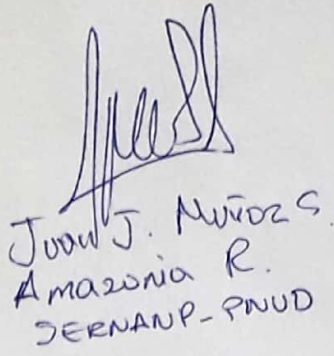 Juan J. Muñoz S.
Amazonia R.
SERNANP-PNUD